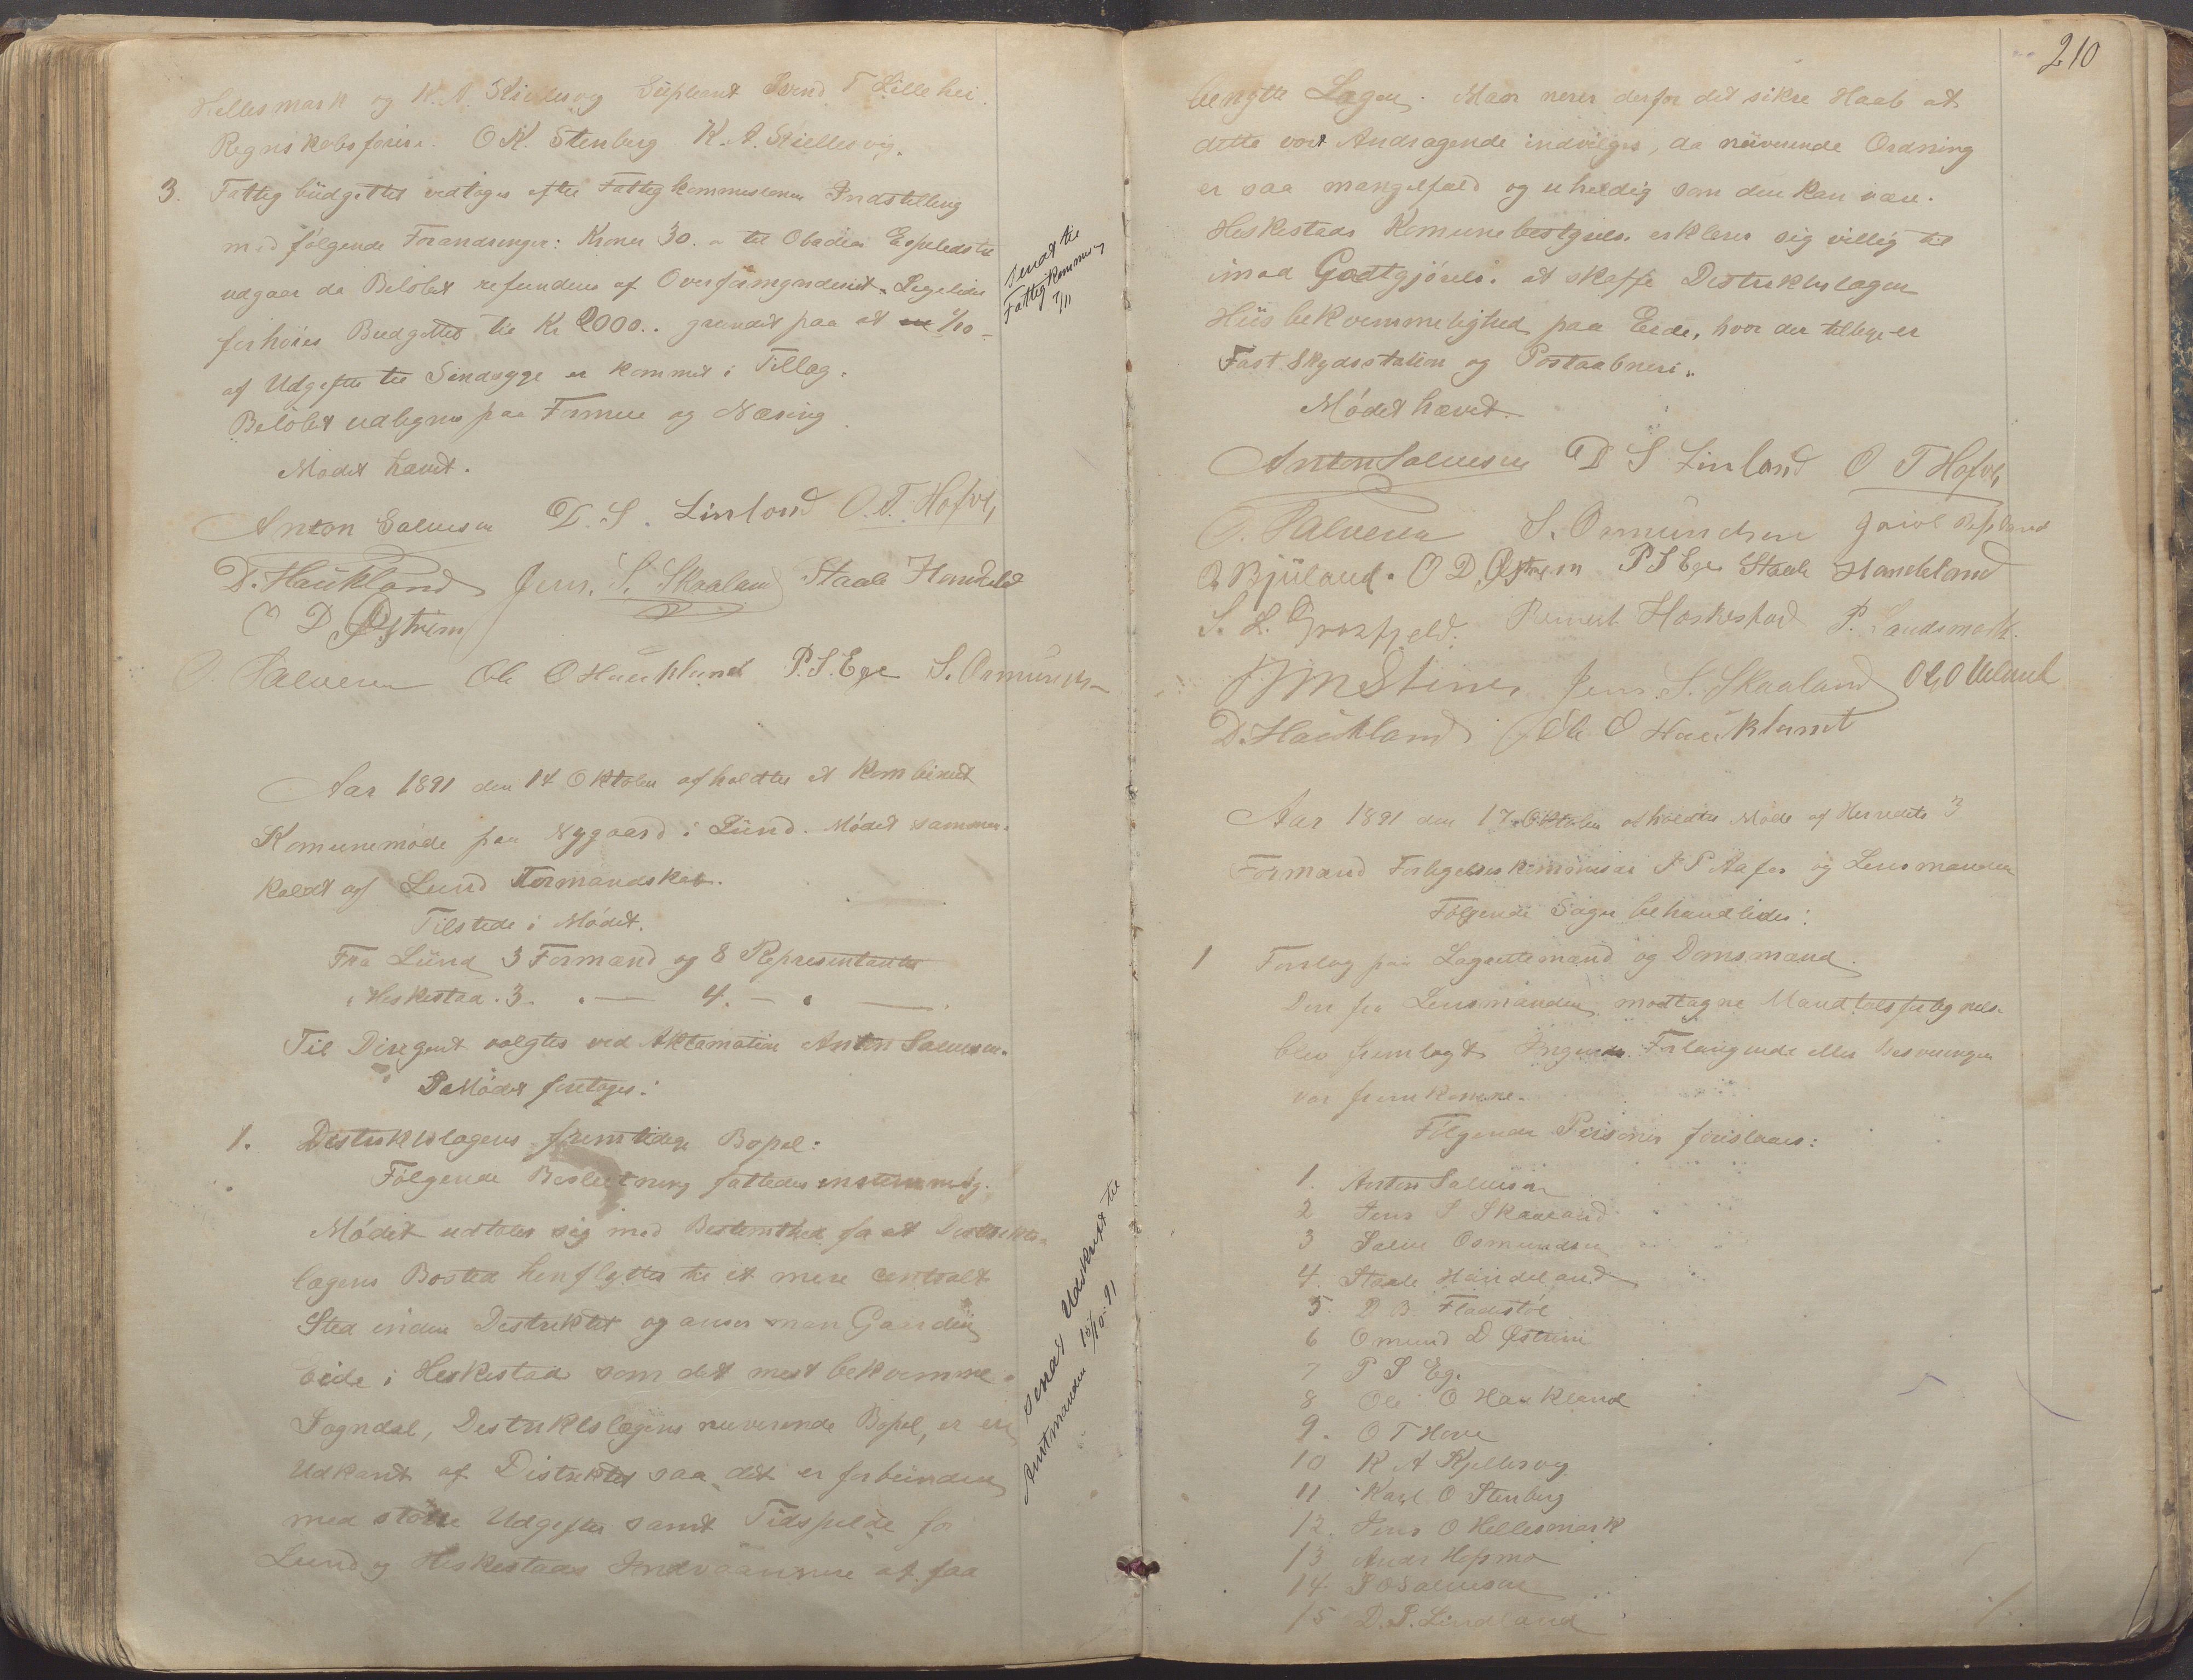 Hellesmark og K. A. Kiellesvig Supleant Svend T Lillehei.
Regnskabsførere. O K. Stenberg K. A. Kiellesvig.
3. Fattigbüdgettet vedtoges efter Fattigkommisionens Indstilling
med følgende Forandringer: Kroner 30. til Obadias
udgaar da Beløbet refunderes af Overformynderiet. Ligeledes
forhøies Budgettet til Kr 2000.. grundet paa at 1/10
af Udgifter til Sindsyge er kommet i Tillæg.
Beløbet udlignes paa Formue og Næring
Mødet hævet.
Sendt til
Fattigkommis
7/11
Anton Salvesen D. S. Linland O. T. Hofve,
D. Haükland Jens. S. Skaaland Staale Handeld
O D Østreim
O. Salvesen Ole O Haukland P. S. Ege S. Osmunds
Aar 1891 den 14 Oktober afholdtes et kombinert
Komunemøde paa Nygaard i Lünd. Mødet sammen-
kaldt af Lund Formandskab.
Tilstede i Mødet.
Fra Lünd 3 Formænd og 8 Representanter
" Heskestad. 3. " — 4. — " —
Til Dirigent valgtes ved Aklamation Anton Salvesen.
I Mødet foretoges:
1. Distriktslægens fremtidige Bopel:
Følgende Beslutning fattedes enstemmig.
Mødet udtaler sig med Bestemthed for at Distrikts-
lægens Bosted henflyttes til et mere centralt
Sted inden Distriktet og anser man Gaarden
Eide i Heskestad som det mest bekvemme.
Sogndal, Distriktslægens nuverende Bopel, er en
Udkant af Distriktet saa det er forbunden
med større Udgifter samt Tidspilde for
Lund og Heskestads Indvaannere at faa
Sendt Udskrift til
Amtmanden 15/10 91
210
benytte Lægen. Man nerer derfor det sikre Haab at
dette vort Andragende indvilges, da nüverende Ordning
er saa mangelfuld og uheldig som den kan være.
Heskestads Komunebestyrelse erklerer sig villig til
imod Godtgjørelse at skaffe Distriktslægen
Hüsbekvemmelighed paa Eide, hvor der tillige er
Fast Skydsstation og Postaabneri.
Mødet hævet.
Anton Salvesen D S Linland O T Hofve,
O. Salvesen S. Osmundsen
O Bjüland. O D Østreim P S Ege Staale Handeland
S. L. Grøsfjeld. Heskestad P. Sandsmark.
Jens. S. Skaaland
D. Haükland Ole O Haükland
Aar 1891 den 17 Oktober afholdtes Møde af Herredets 3
Formænd Forligelseskommisær og Lensmanden
Følgende Sager behandledes:
1 Forslag paa Lagrettemænd og Domsmænd.
Den fra Lensmanden modtagne Mandtalsfortegnelse
blev fremlagt. Ingen Forlangende eller Besveringer
var fremkomne.
Følgende Personer foreslaaes:
1. Anton Salvesen
2 Jens S Skaaland
3 Salve Osmundsen
4. Staale Handeland
5. D B Fladstøl
6 Omund D Østreim
7 P S Ege
8 Ole O Haukland
9. O T Hove
10 K A Kjellesvig
11. Karl O Stenberg
12. Jens O Hellesmark
13 Andr Hofsmo
14. S O Salvesen
15 D. S. Lindland